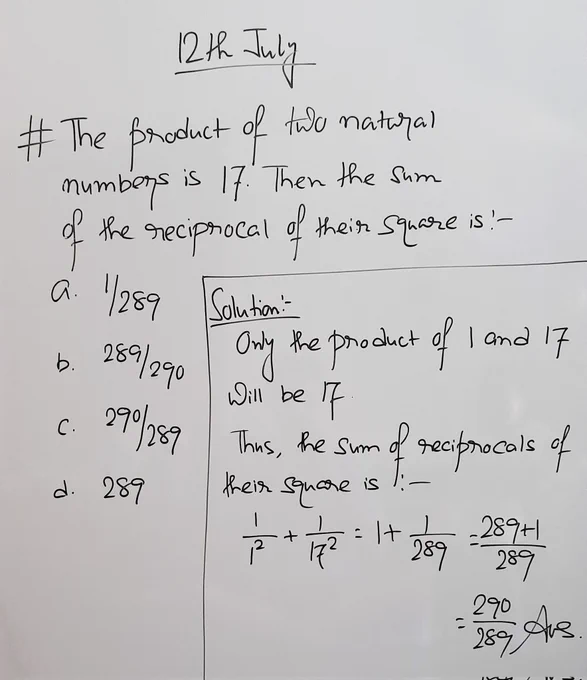 12th July
# The product of two natural
numbers is 17. Then the sum
of the reciprocal of their square is:-
a. 1/289
b. 289/290
c. 290/289
d. 289
Solution:-
Only the product of 1 and 17
will be 17.
Thus, the sum of reciprocals of
their square is :-
1/1² + 1/17² = 1 + 1/289 = 289+1/289
= 290/289 Ans.